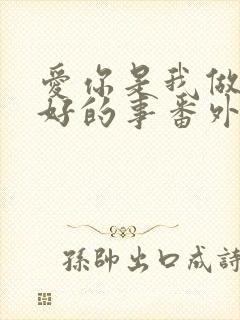 愛你是我做
好的事番外
孫帥出口成詩